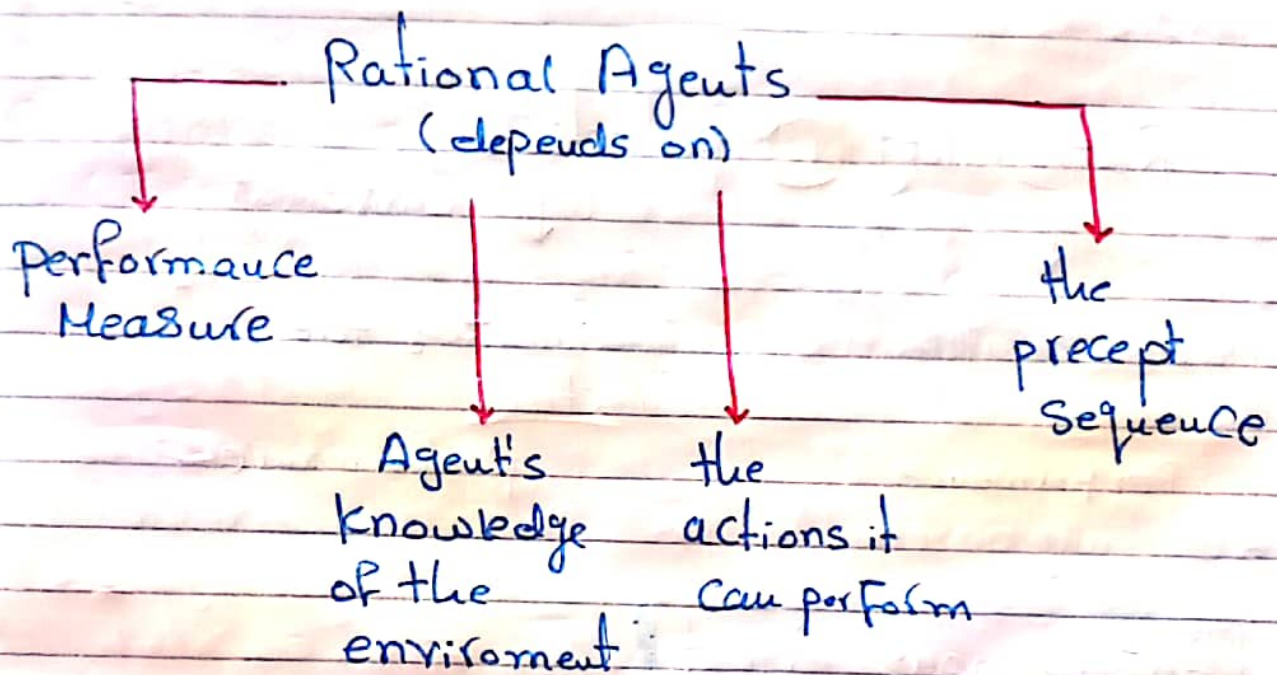 Rational Agents
(depends on)
Performance
Measure
Agent's
knowledge
of the
enviroment
the
actions it
can perform
the
precept
sequence